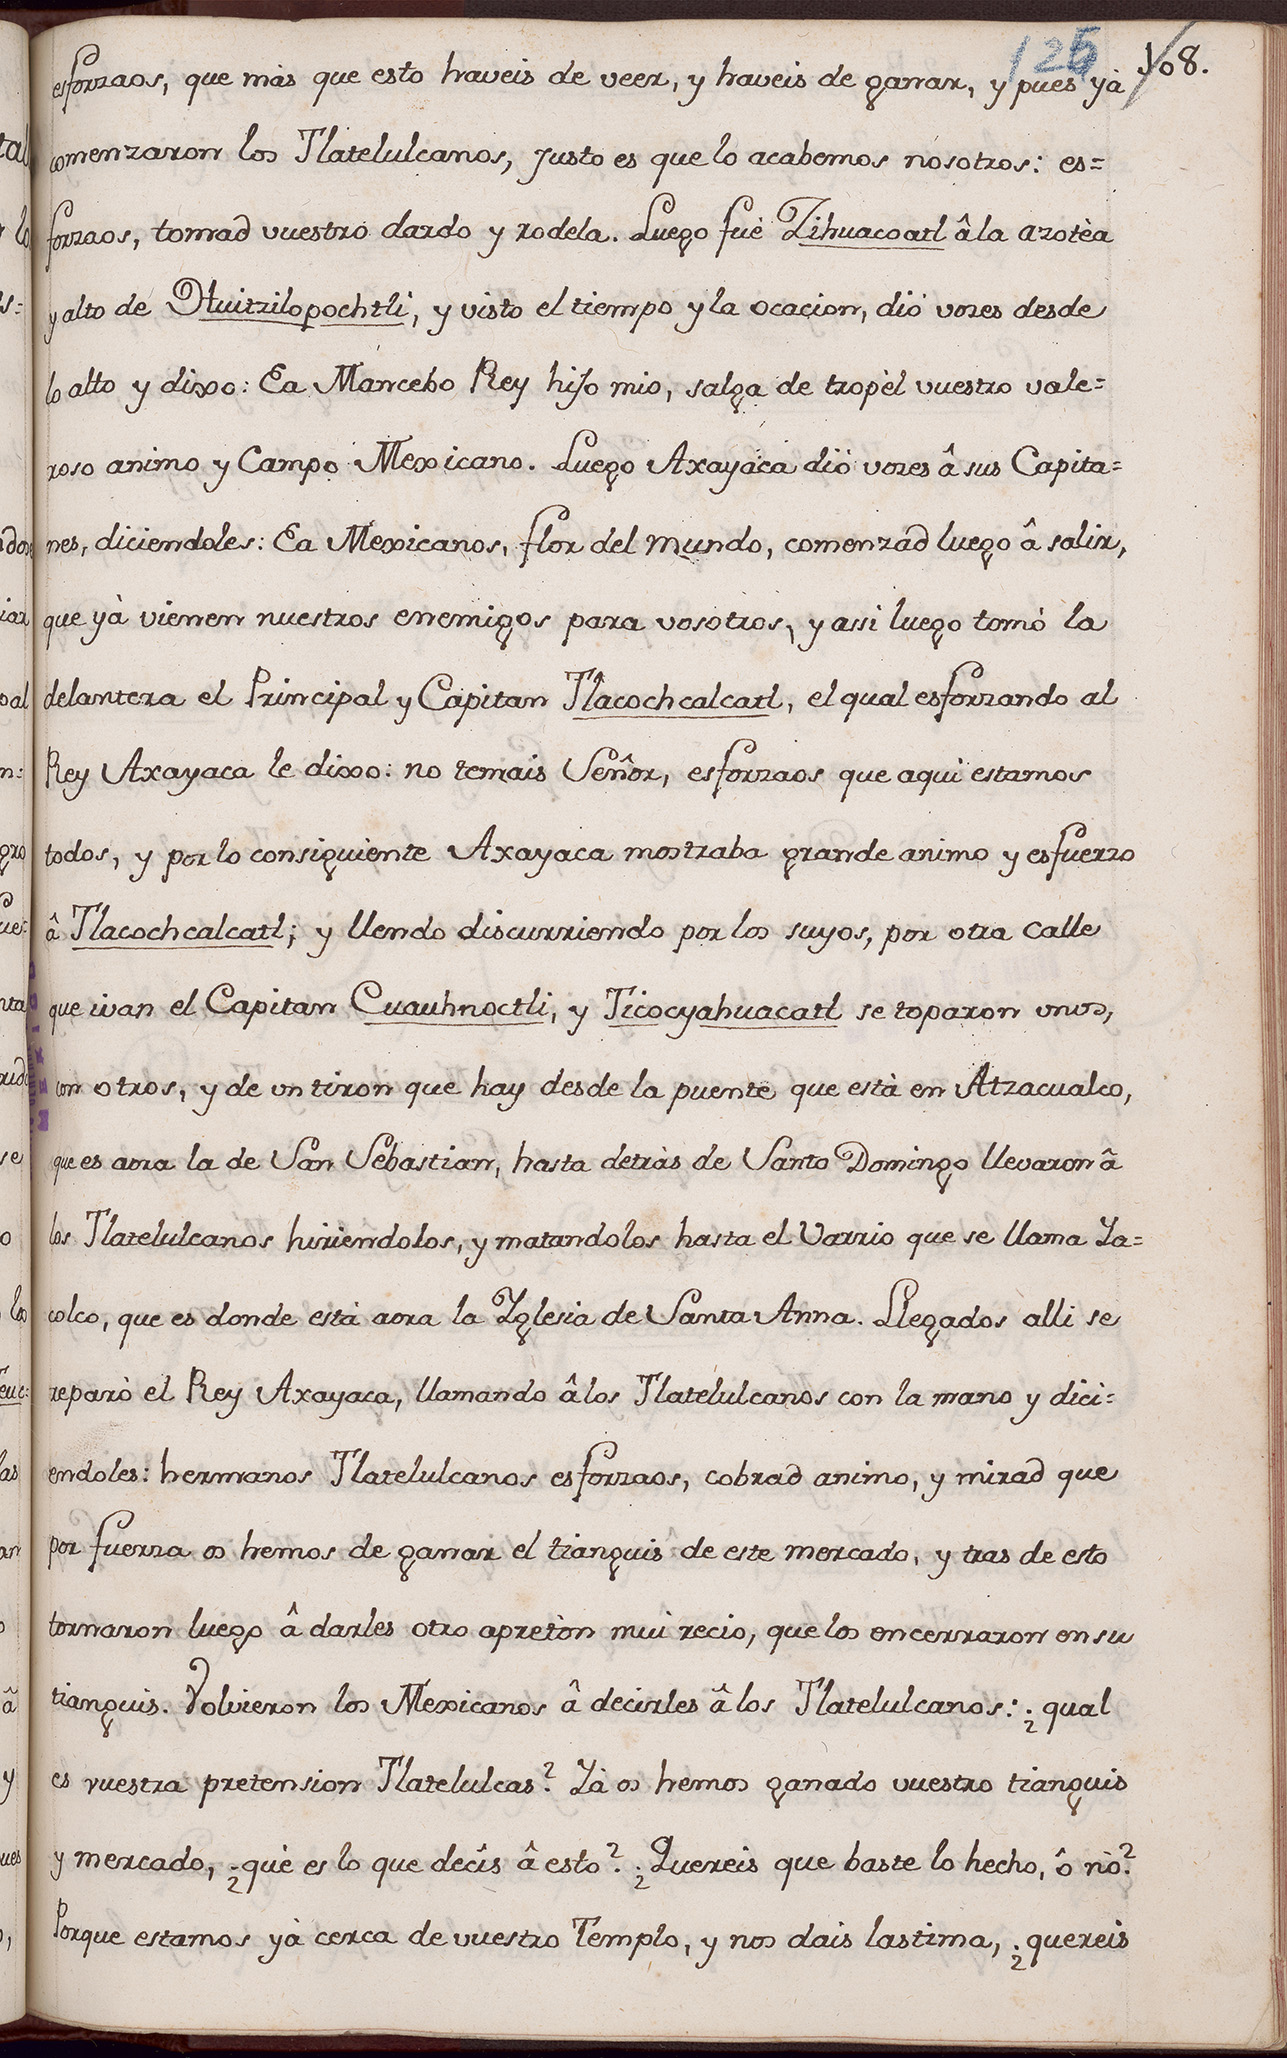 125 108.
esforzaos, que màs que esto haveis de veer, y haveis de ganar, y pues yà
comenzaron los Tlatelulcanos, justo es que lo acabemos nosotros: es=
forzaos, tomad vuestro dardo y rodela. Luego fuè Zihuacoatl â la azotèa
y alto de Huitzilopochtli, y visto el tiempo y la ocacion, diò vozes desde
lo alto y dixo: Ea Mancebo Rey hijo mio, salga de tropèl vuestro vale=
roso animo y Campo Mexicano. Luego Axayaca diò vozes â sus Capita=
nes, diciendoles: Ea Mexicanos, flor del mundo, comenzad luego â salir,
que yà vienen nuestros enemigos para vosotros, y assi luego tomò la
delantera el Principal y Capitan Tlacochcalcatl, el qual esforzando al
Rey Axayaca le dixo: no temais Señor, esforzaos que aqui estamos
todos, y por lo consiguiente Axayaca mostraba grande animo y esfuerzo
â Tlacochcalcatl; y llendo discurriendo por los suyos, por otra calle
que ivan el Capitan Cuauhnoctli, y Ticocyahuacatl se toparon unos,
con otros, y de un tiron que hay desde la puente que està en Atzacualco,
que es aora la de San Sebastian, hasta detràs de Santo Domingo llevaron â
los Tlatelulcanos hiriendolos, y matandolos hasta el Varrio que se llama Ya=
colco, que es donde està aora la Yglesia de Santa Anna. Llegados alli se
reparò el Rey Axayaca, llamando â los Tlatelulcanos con la mano y dici=
endoles: hermanos Tlatelulcanos esforzaos, cobrad animo, y mirad que
por fuerza os hemos de ganar el tianguis de este mercado, y tras de esto
tornaron luego â darles otro apretòn mui recio, que los encerraron en su
tianguis. Volvieron los Mexicanos â decirles â los Tlatelulcanos: ¿qual
es vuestra pretension Tlatelulcas? Yà os hemos ganado vuestro tianguis
y mercado, ¿què es lo que decîs â esto? ¿Quereis que baste lo hecho, ô nò?
Porque estamos yà cerca de vuestro Templo, y nos dais lastima, ¿quereis